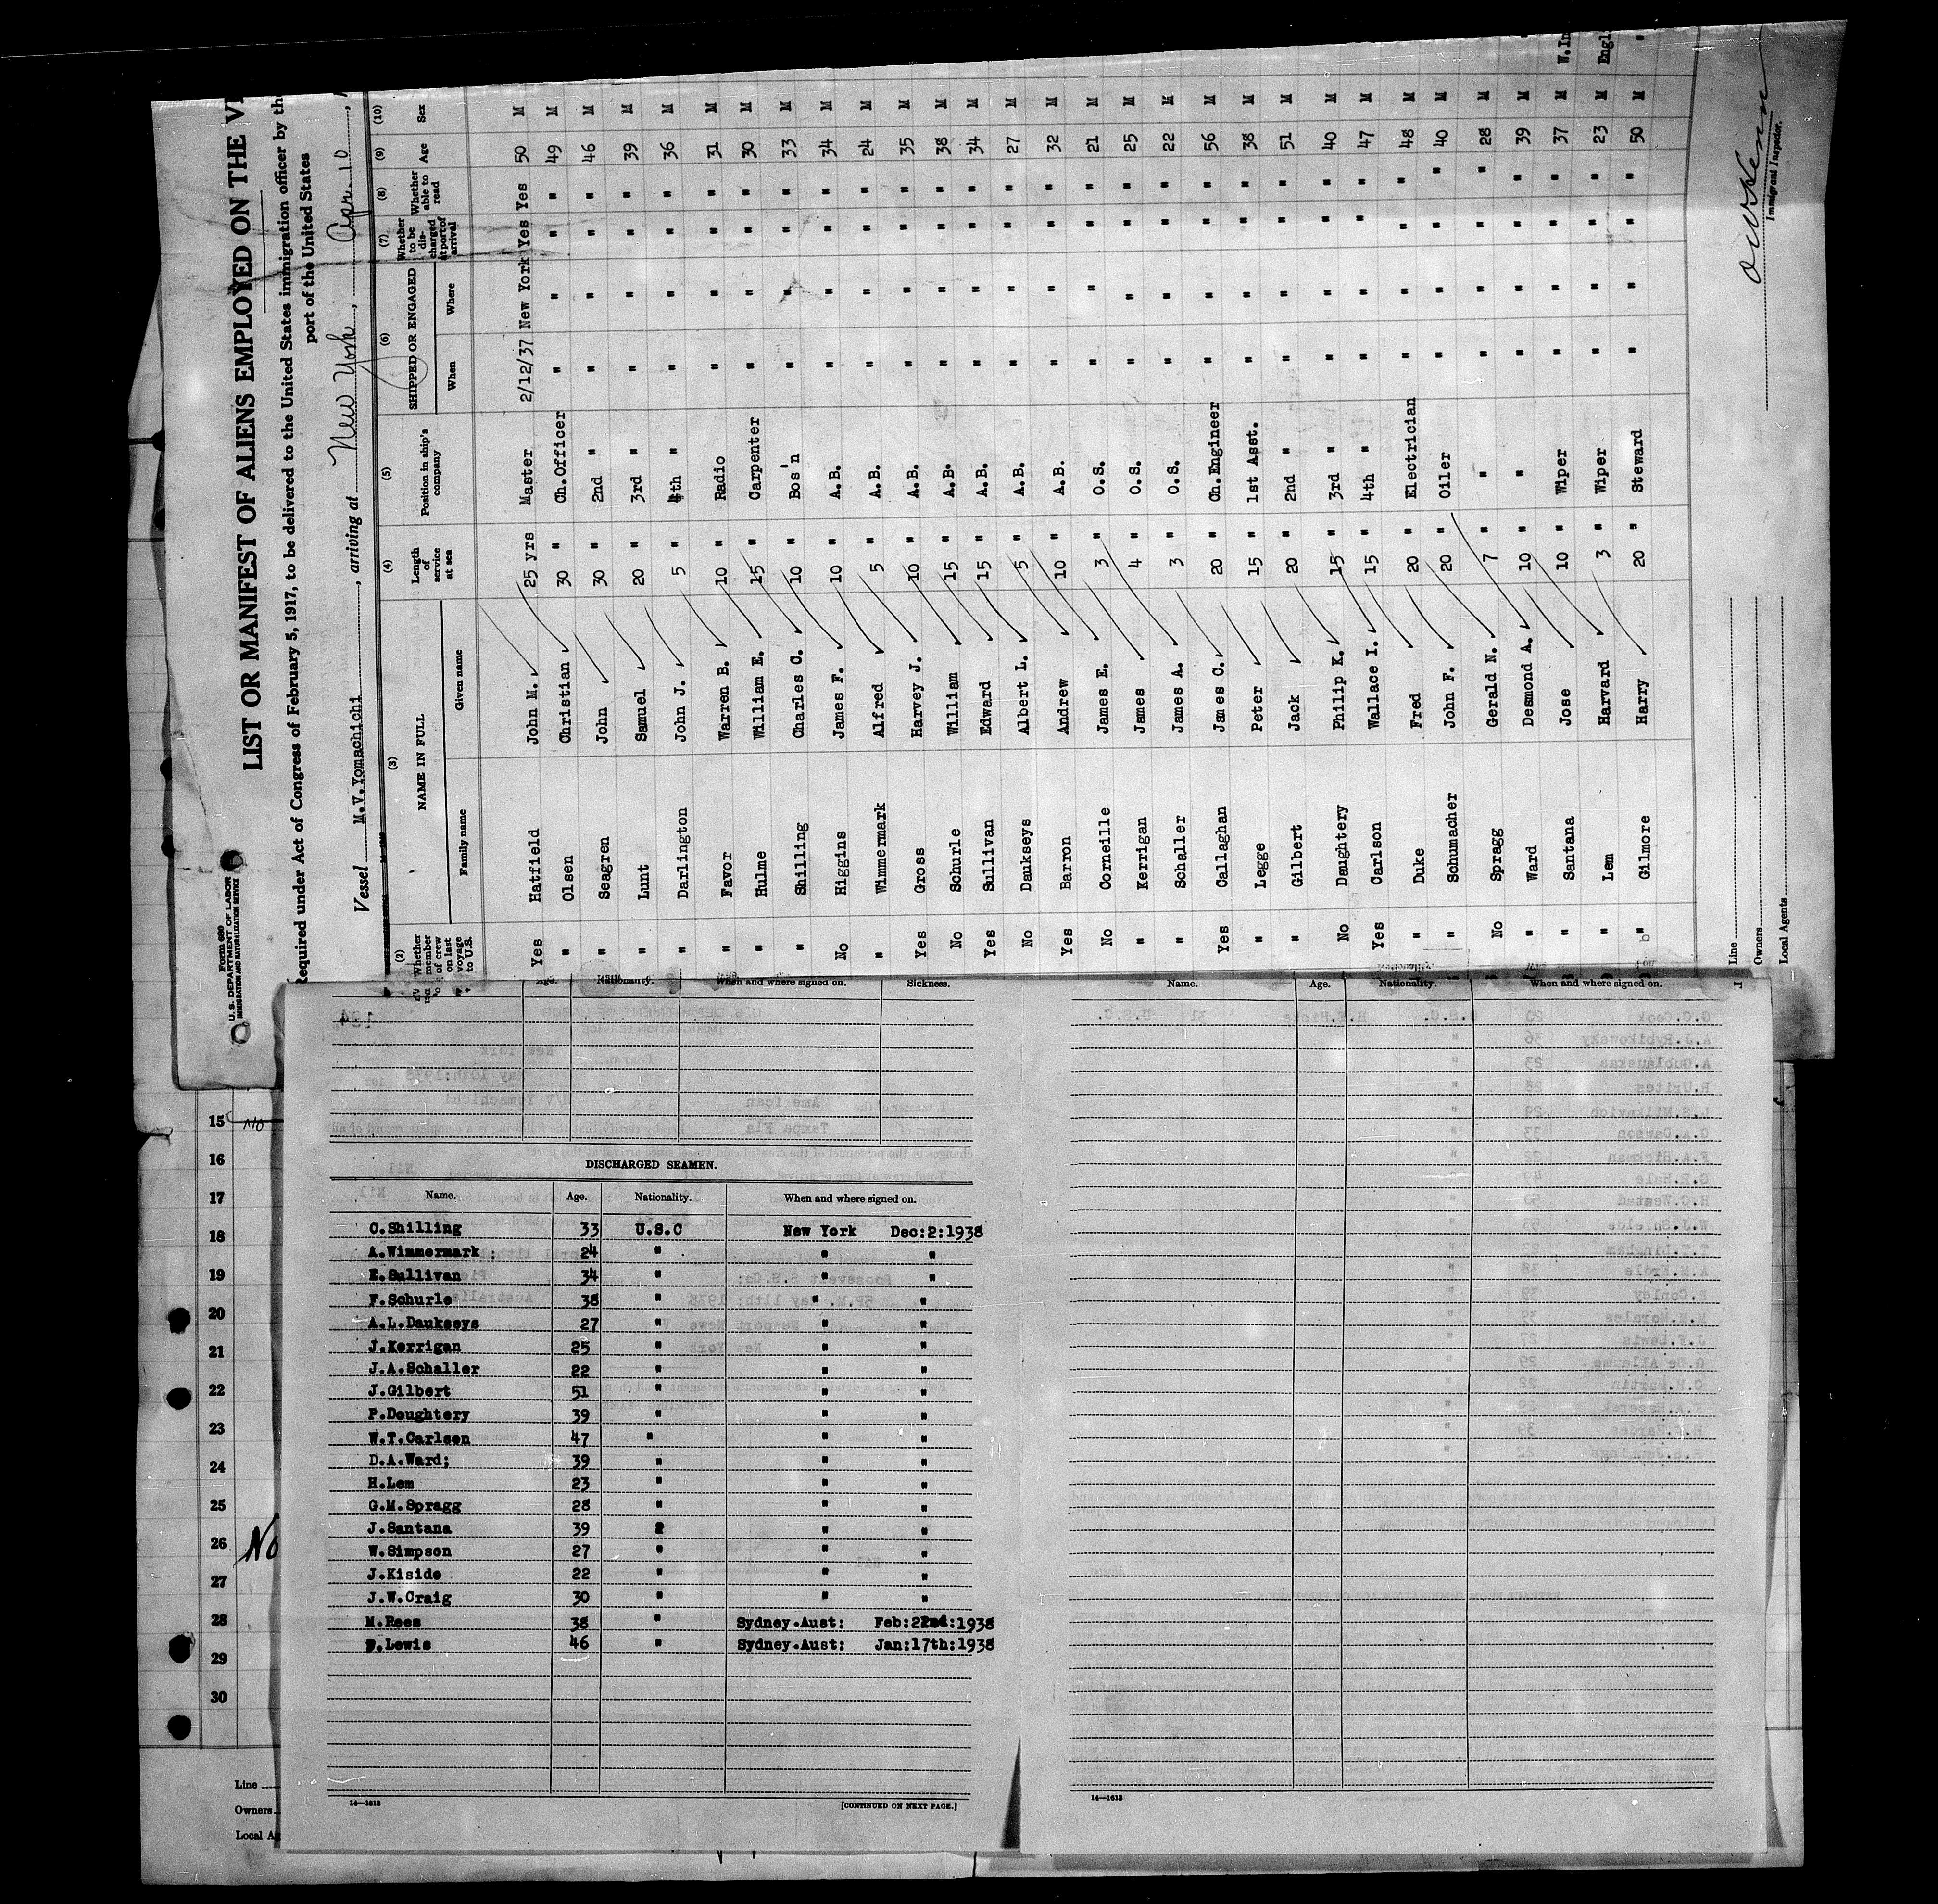 Form 680
U. S. DEPARTMENT OF LABOR
IMMIGRATION AND NATURALIZATION SERVICE
LIST OR MANIFEST OF ALIENS EMPLOYED ON THE
Required under Act of Congress of February 5, 1917, to be delivered to the United States immigration officer by th
port of the United States
Vessel M.V.Yomachichi, arriving at New York, Apr. 10
(2) (3) (4) (5) (6) (7) (8) (9) (10)
Whether member of crew on last voyage to U.S. NAME IN FULL Family name Given name Length of service at sea Position in ship's company SHIPPED OR ENGAGED When Where Whether to be discharged at port of arrival Whether able to read Age Sex
Yes Hatfield John M. 25 yrs Master 2/12/37 New York Yes Yes 50 M
" Olsen Christian 30 " Ch.Officer " " " " 49 M
" Seagren John 30 " 2nd " " " " " 46 M
" Lunt Samuel 20 " 3rd " " " " " 39 M
" Darlington John J. 5 " 4th " " " " " 36 M
" Favor Warren B. 10 " Radio " " " " 31 M
" Hulme William E. 15 " Carpenter " " " " 30 M
" Shilling Charles C. 10 " Bos'n " " " " 33 M
No Higgins James F. 10 " A.B. " " " " 34 M
" Wimmermark Alfred 5 " A.B. " " " " 24 M
Yes Gross Harvey J. 10 " A.B. " " " " 35 M
No Schurle William 15 " A.B. " " " " 38 M
Yes Sullivan Edward 15 " A.B. " " " " 34 M
No Daukseys Albert L. 5 " A.B. " " " " 27 M
Yes Barron Andrew 10 " A.B. " " " " 32 M
No Corneille James E. 3 " O.S. " " " " 21 M
" Kerrigan James 4 " O.S. " " " " 25 M
" Schaller James A. 3 " O.S. " " " " 22 M
Yes Callaghan James C. 20 " Ch.Engineer " " " " 56 M
" Legge Peter 15 " 1st Asst. " " " " 38 M
" Gilbert Jack 20 " 2nd " " " " " 51 M
No Daughtery Philip K. 15 " 3rd " " " " " 40 M
Yes Carlson Wallace I. 15 " 4th " " " " " 47 M
" Duke Fred 20 " Electrician " " " " 48 M
" Schumacher John F. 20 " Oiler " " " " 40 M
No Spragg Gerald N. 7 " " " " " " 28 M
" Ward Desmond A. 10 " " " " " " 39 M
" Santana Jose 10 " Wiper " " " " 37 M W.In
" Lem Harvard 3 " Wiper " " " " 23 M Engl
" Gilmore Harry 20 " Steward " " " " 50 M "
Line
Owners
Local Agents
Immigrant Inspector.
Age. Nationality. When and where signed on. Sickness.
DISCHARGED SEAMEN.
Name. Age. Nationality. When and where signed on.
C.Shilling 33 U.S.C New York Dec:2:1938
A.Wimmermark: 24 " " "
E.Sullivan 34 " " "
F.Schurle 38 " " "
A.L.Daukseys 27 " " "
J.Kerrigan 25 " " "
J.A.Schaller 22 " " "
J.Gilbert 51 " " "
P.Doughtery 39 " " "
W.T.Carlsen 47 " " "
D.A.Ward; 39 " " "
H.Lem 23 " " "
G.M.Spragg 28 " " "
J.Santana 39 " " "
W.Simpson 27 " " "
J.Kiside 22 " " "
J.W.Craig 30 " " "
M.Rees 38 " Sydney.Aust: Feb:22nd:1938
D.Lewis 46 " Sydney.Aust: Jan:17th:1938
14—1613
[CONTINUED ON NEXT PAGE.]
Name. Age. Nationality. When and where signed on.
14—1613
15
16
17
18
19
20
21
22
23
24
25
26
27
28
29
30
No
No
Line
Owners
Local A